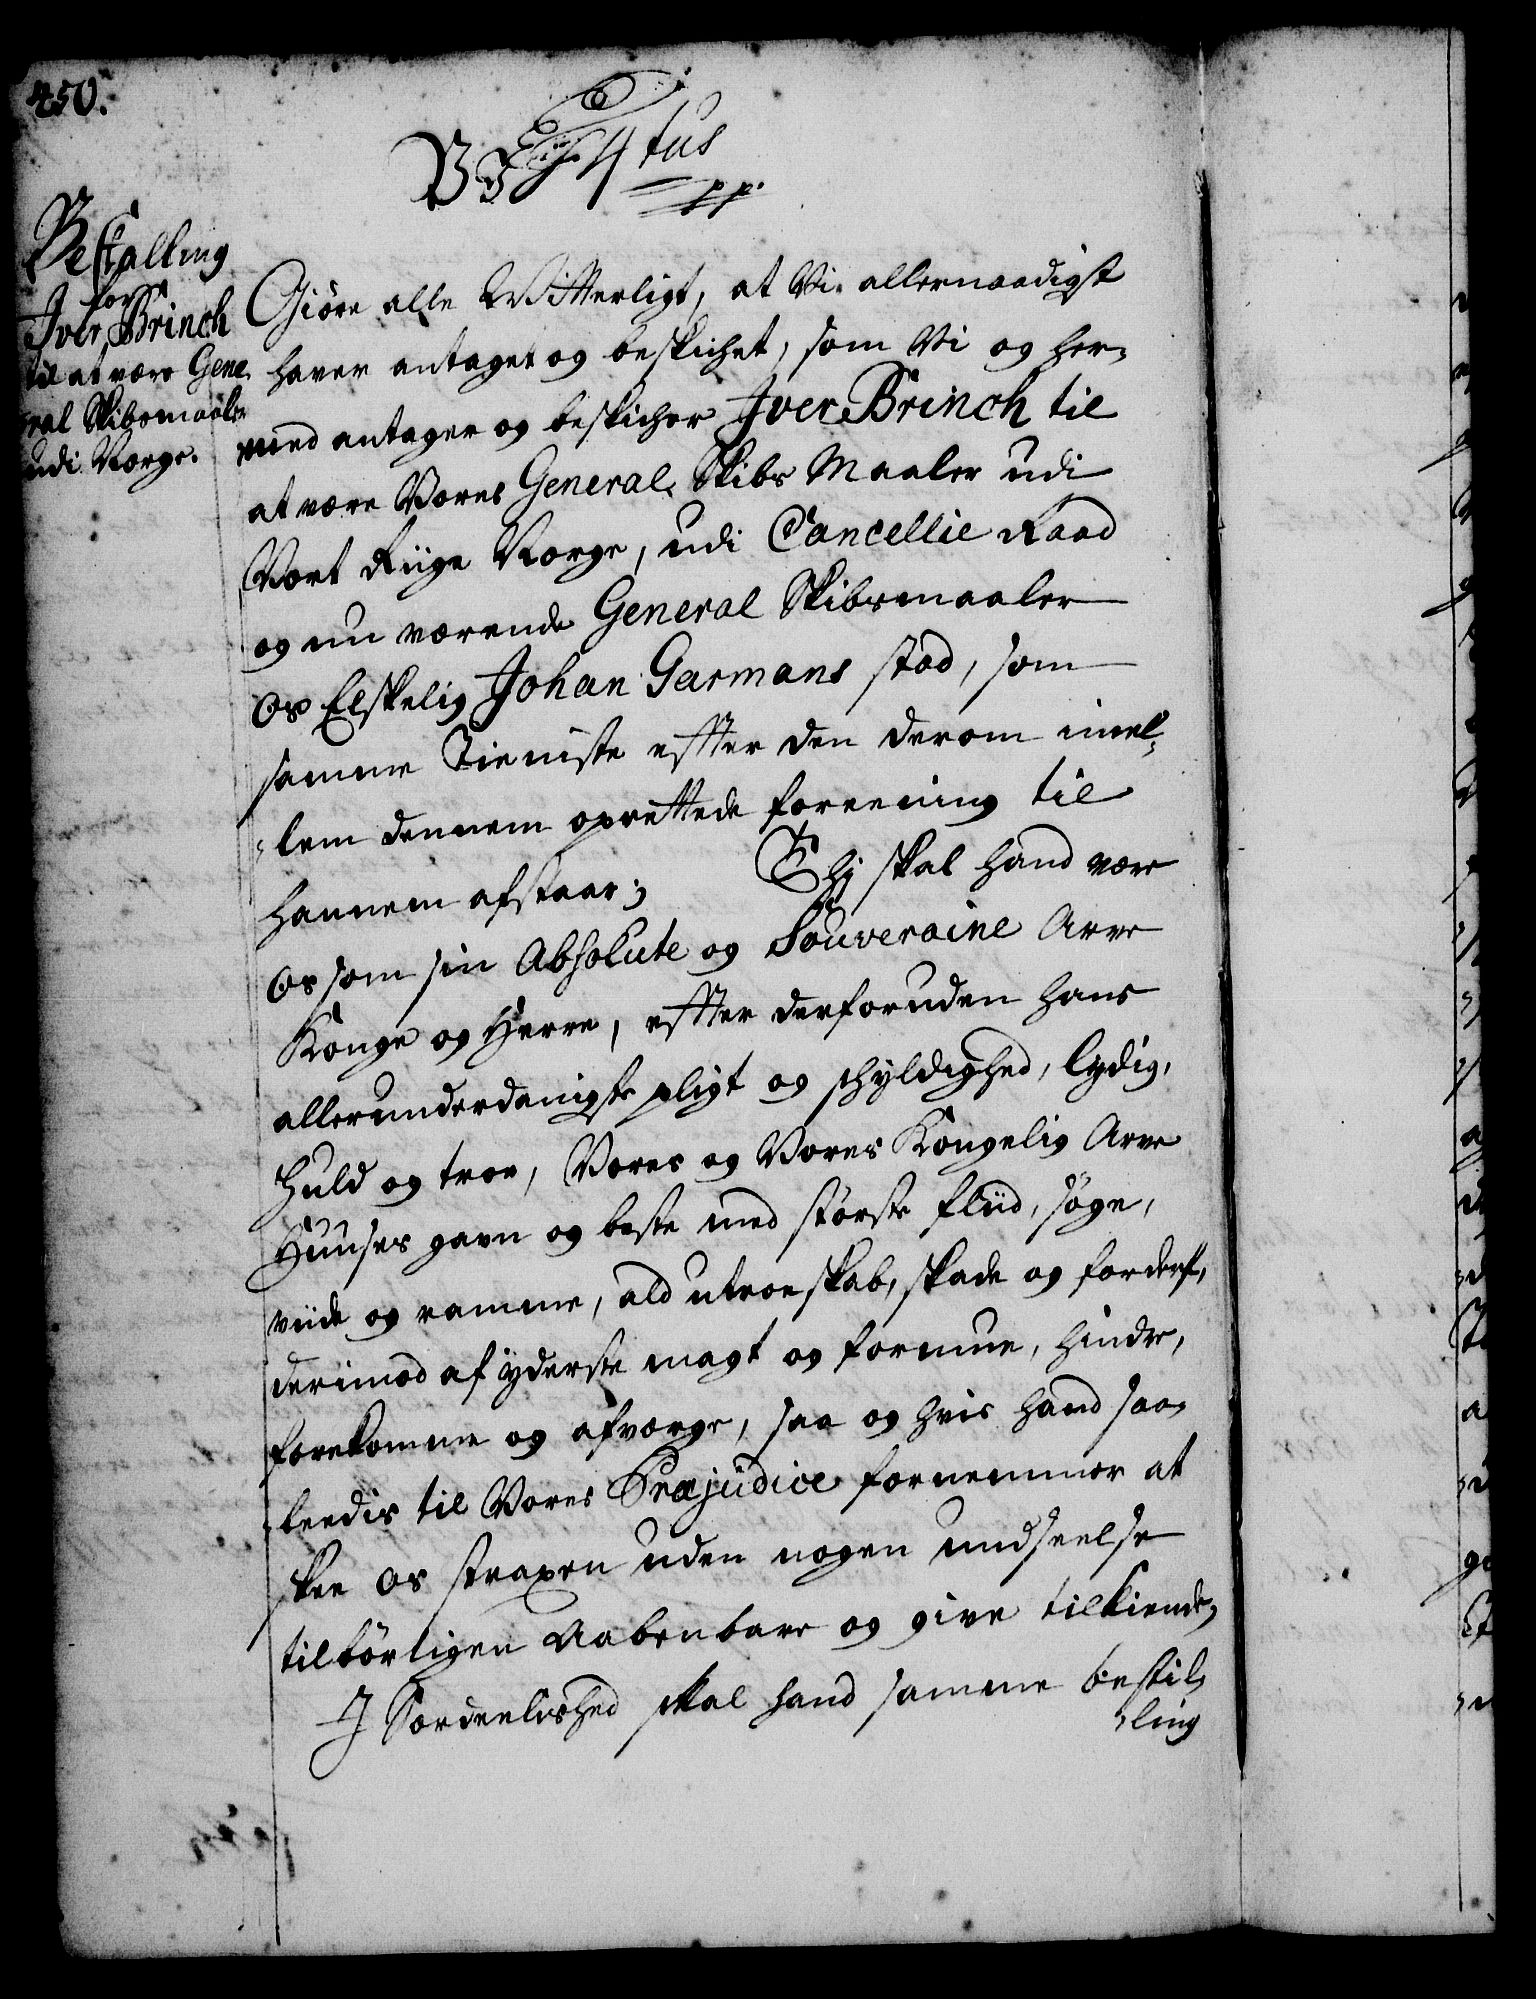 450.
V F 4 tus
pp.
Bestalling
for
Iver Brinch
til at være Gene
ral Skibsmaaler
udi Norge.
Giöre alle Witterligt, at Vi allernaadigst
haver antaget og beskichet, som Vi og her-
med antager og beskicher Iver Brinch til
at være Vores General Skibs Maaler udi
Vort Riige Norge, udi Cancellie Raad
og nu værende General Skibsmaaler
Os Elskelig Johan Garmans stad, som
samme Tieniste effter den derom imel-
-lem dennem oprettede foreening til
hannem afstaar; Thj skal hand være
Os som sin Absolute og Souveraine Arve
Konge og Herre, effter derforuden hans
allerunderdanigste pligt og schyldighed, lydig,
huld og troe, Vores og Vores Kongelig Arve
Huuses gavn og beste med störste fliid, söge,
viide og ramme, ald utroeskab, skade og forderf,
derimod af yderste magt og formue, hindre,
forekomme og afværge, saa og hvis hand saa-
-leedis til Vores Præjudice fornemmer at
skee Os straxen uden nogen undseelse
tilbörligen Aabenbare og give tilkiende,
J Særdeelished skal hand samme bestil-
-ling